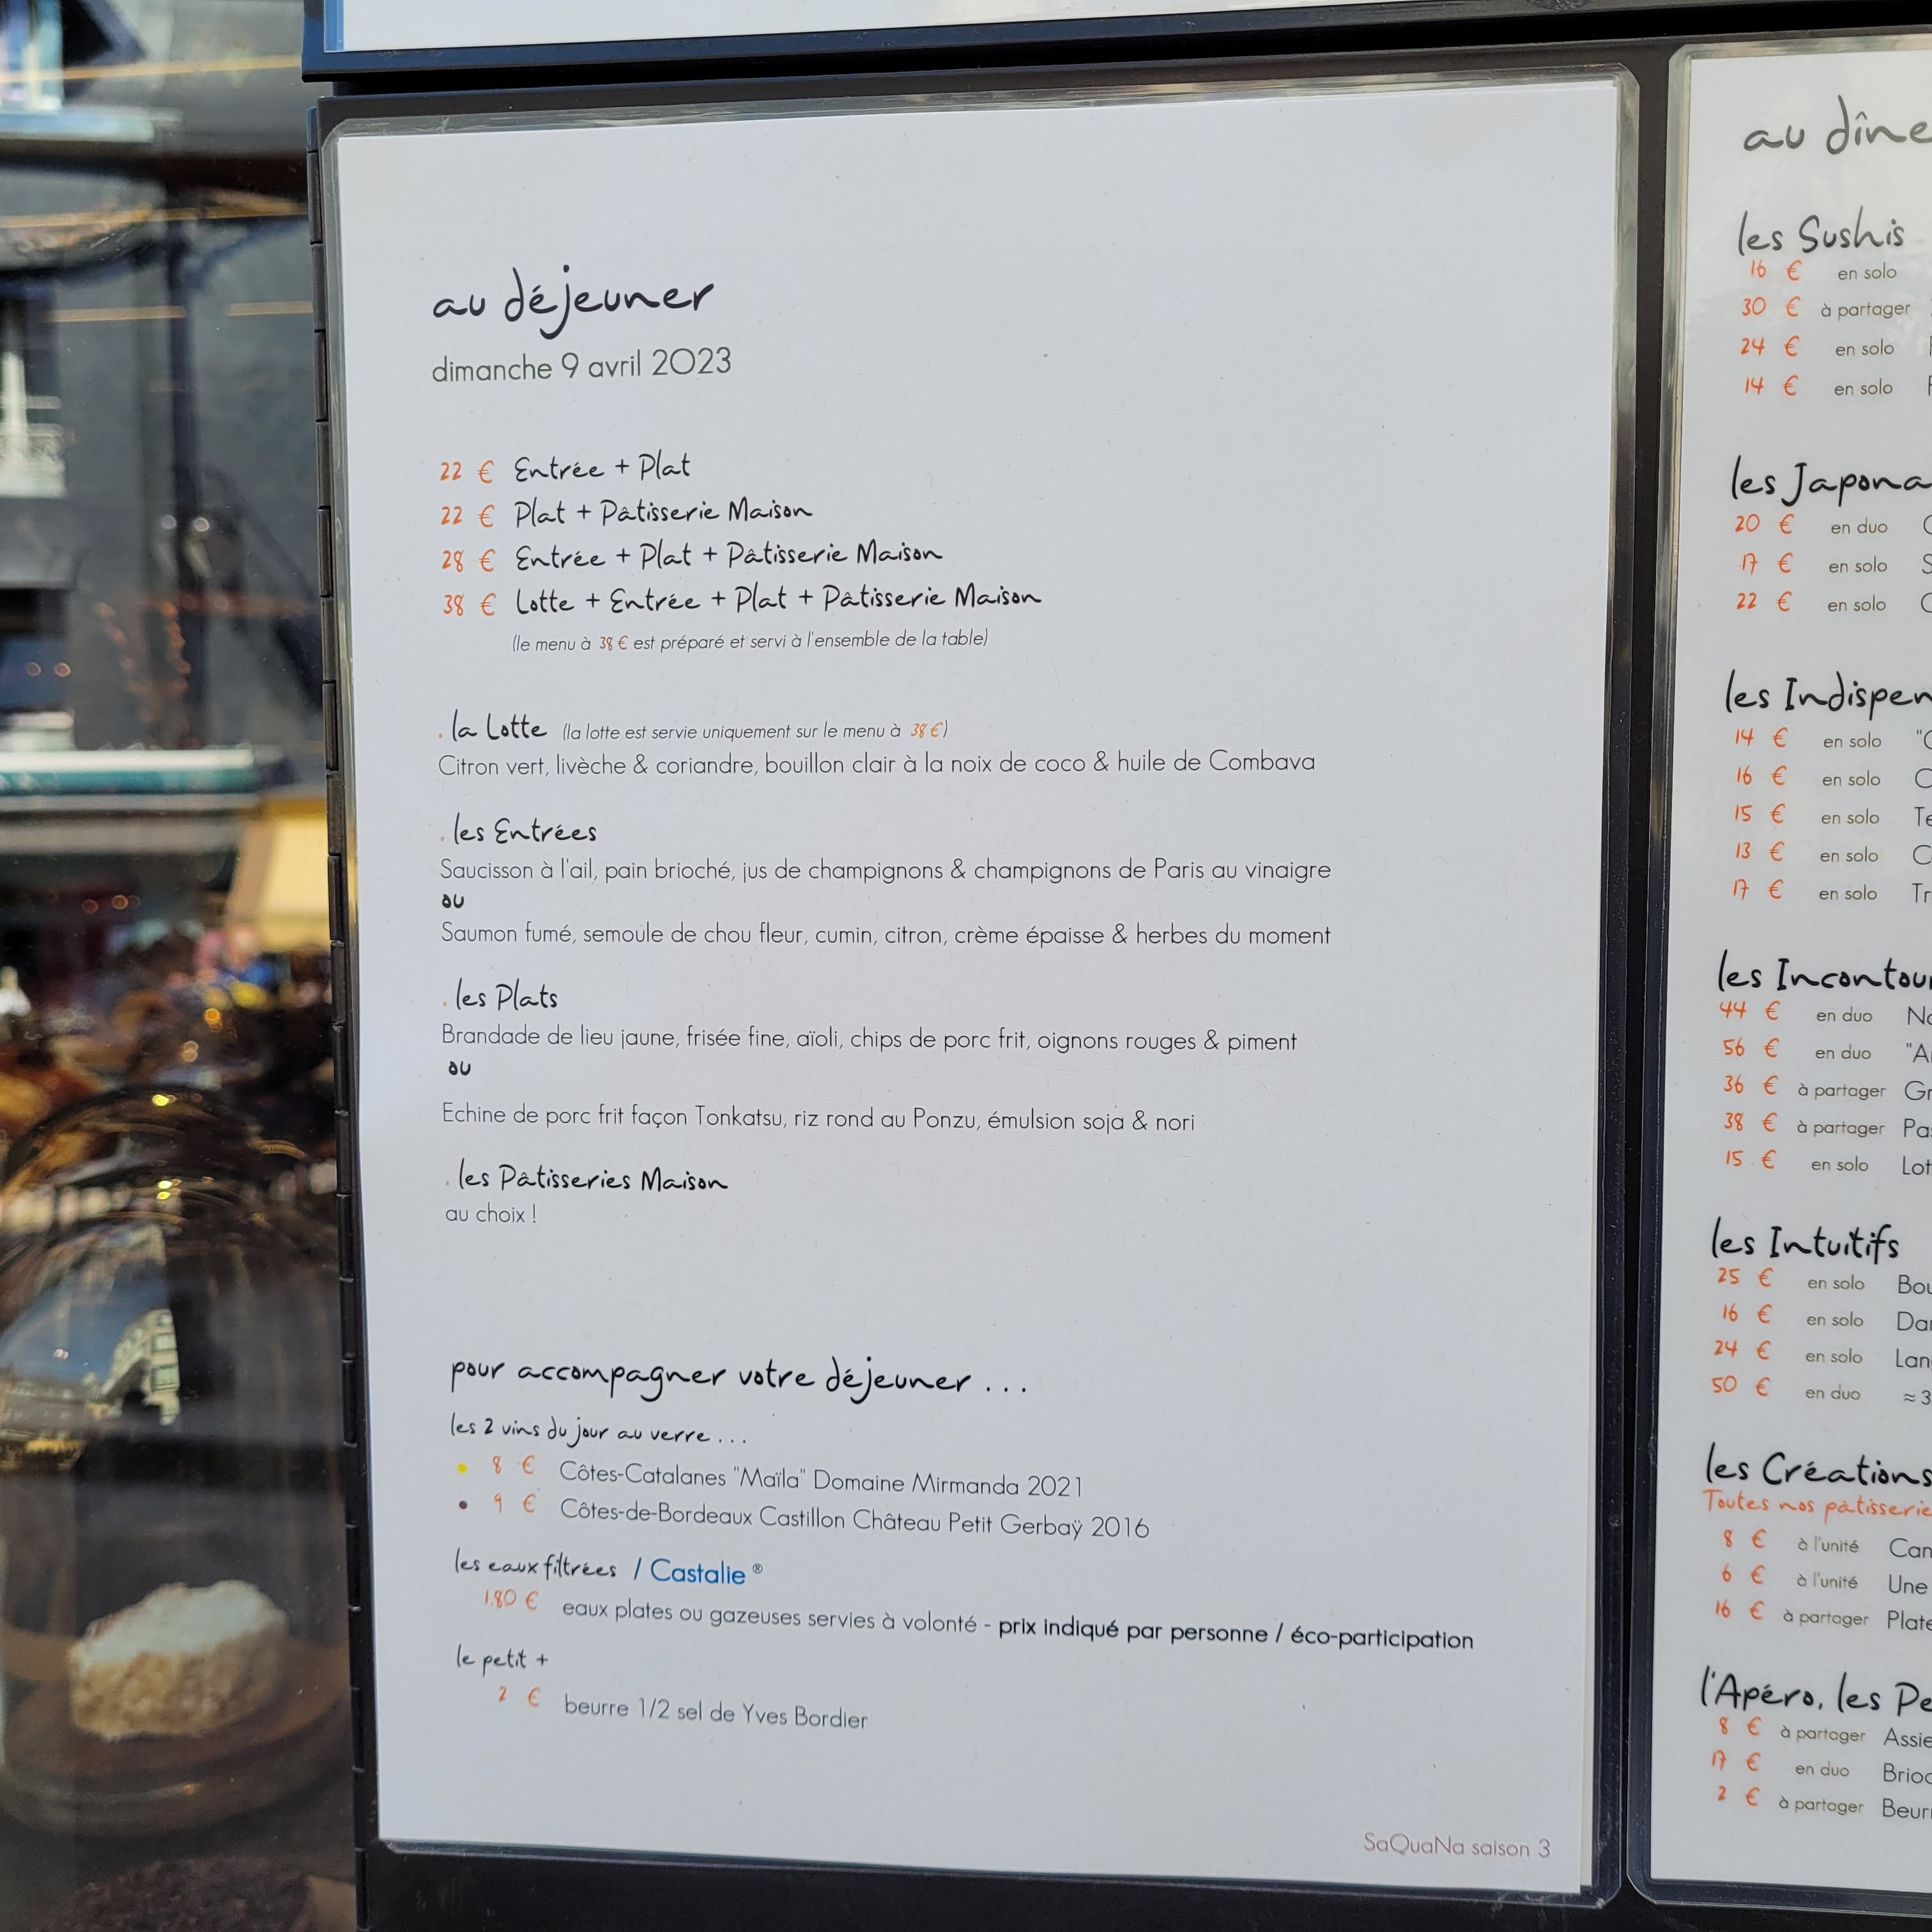 au déjeuner
dimanche 9 avril 2023
22 € Entrée + Plat
22 € Plat + Pâtisserie Maison
28 € Entrée + Plat + Pâtisserie Maison
38 € Lotte + Entrée + Plat + Pâtisserie Maison
(le menu à 38 € est préparé et servi à l'ensemble de la table)
. la Lotte (la lotte est servie uniquement sur le menu à 38 €)
Citron vert, livèche & coriandre, bouillon clair à la noix de coco & huile de Combava
. les Entrées
Saucisson à l'ail, pain brioché, jus de champignons & champignons de Paris au vinaigre
ou
Saumon fumé, semoule de chou fleur, cumin, citron, crème épaisse & herbes du moment
. les Plats
Brandade de lieu jaune, frisée fine, aïoli, chips de porc frit, oignons rouges & piment
ou
Echine de porc frit façon Tonkatsu, riz rond au Ponzu, émulsion soja & nori
. les Pâtisseries Maison
au choix !
pour accompagner votre déjeuner ...
les 2 vins du jour au verre ...
8 € Côtes-Catalanes "Maïla" Domaine Mirmanda 2021
9 € Côtes-de-Bordeaux Castillon Château Petit Gerbaÿ 2016
les eaux filtrées / Castalie ®
1.80 € eaux plates ou gazeuses servies à volonté - prix indiqué par personne / éco-participation
le petit +
2 € beurre 1/2 sel de Yves Bordier
SaQuaNa saison 3
au
les Sushis
16 € en solo
30 € à partager
24 € en solo
14 € en solo
les
20 € en duo
17 € en solo
22 € en solo
les
14 € en solo
16 € en solo
15 € en solo
13 € en solo
17 € en solo
les
44 € en duo
56 € en duo
36 € à partager
38 € à partager
15 € en solo
les Intuitifs
25 € en solo
16 € en solo
24 € en solo
50 € en duo ≈ 3
les Créations
Toutes nos
8 € à l'unité
6 € à l'unité Une
16 € à partager
l'Apéro, les
8 € à partager
17 € en duo
2 € à partager